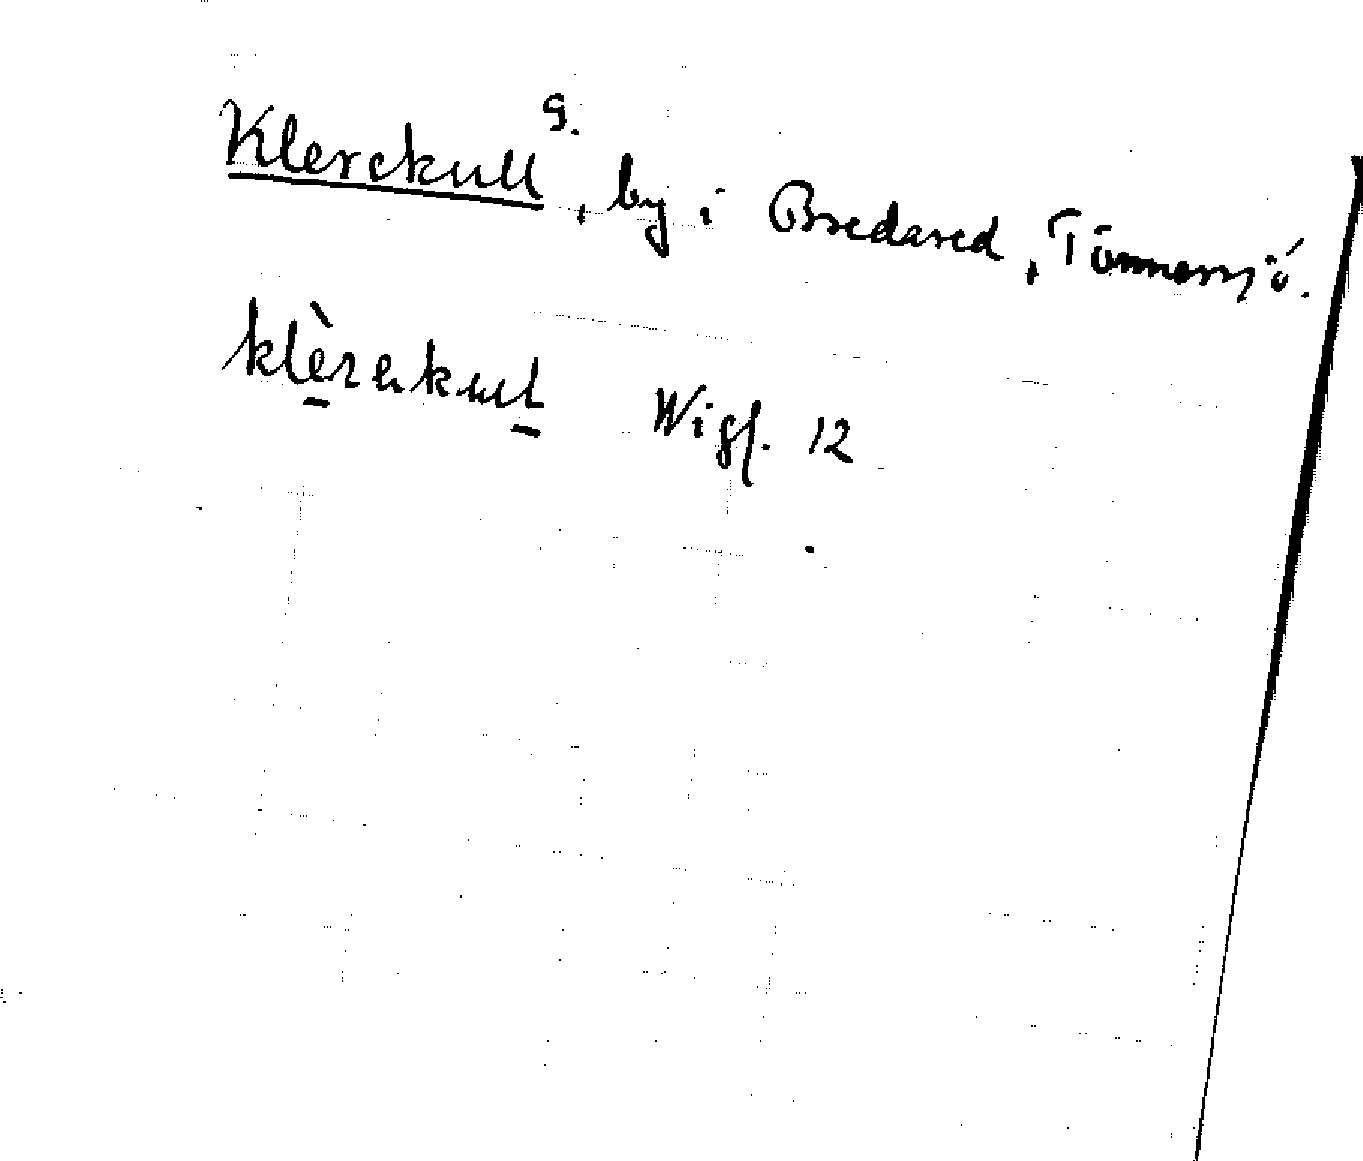 Klerekull g., by i Bredared, Tönnersjö.
klèrekul Wigf. 12